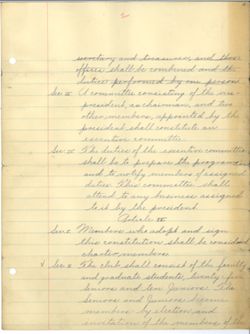 2
secretary and treasurer, and those
offices shall be combined and the
duties performed by one person
Sec II A committee consisting of the vice
president, as chairman, and two
other members, appointed by the
president shall constitute an
executive committee.
Sec II The duties of the executive committee
shall be to prepare the programs
and to notify members of assigned
duties. This committee shall
attend to any business assigned
to it by the president.
Article III
Sec 1 Members who adopt and sign
this constitution shall be considered
charter members.
x Sec 2 The club shall consist of the faculty
and graduate students, twenty five
Seniors and ten Juniors. The
Seniors and Juniors become
members by election and
invitation of the members of the